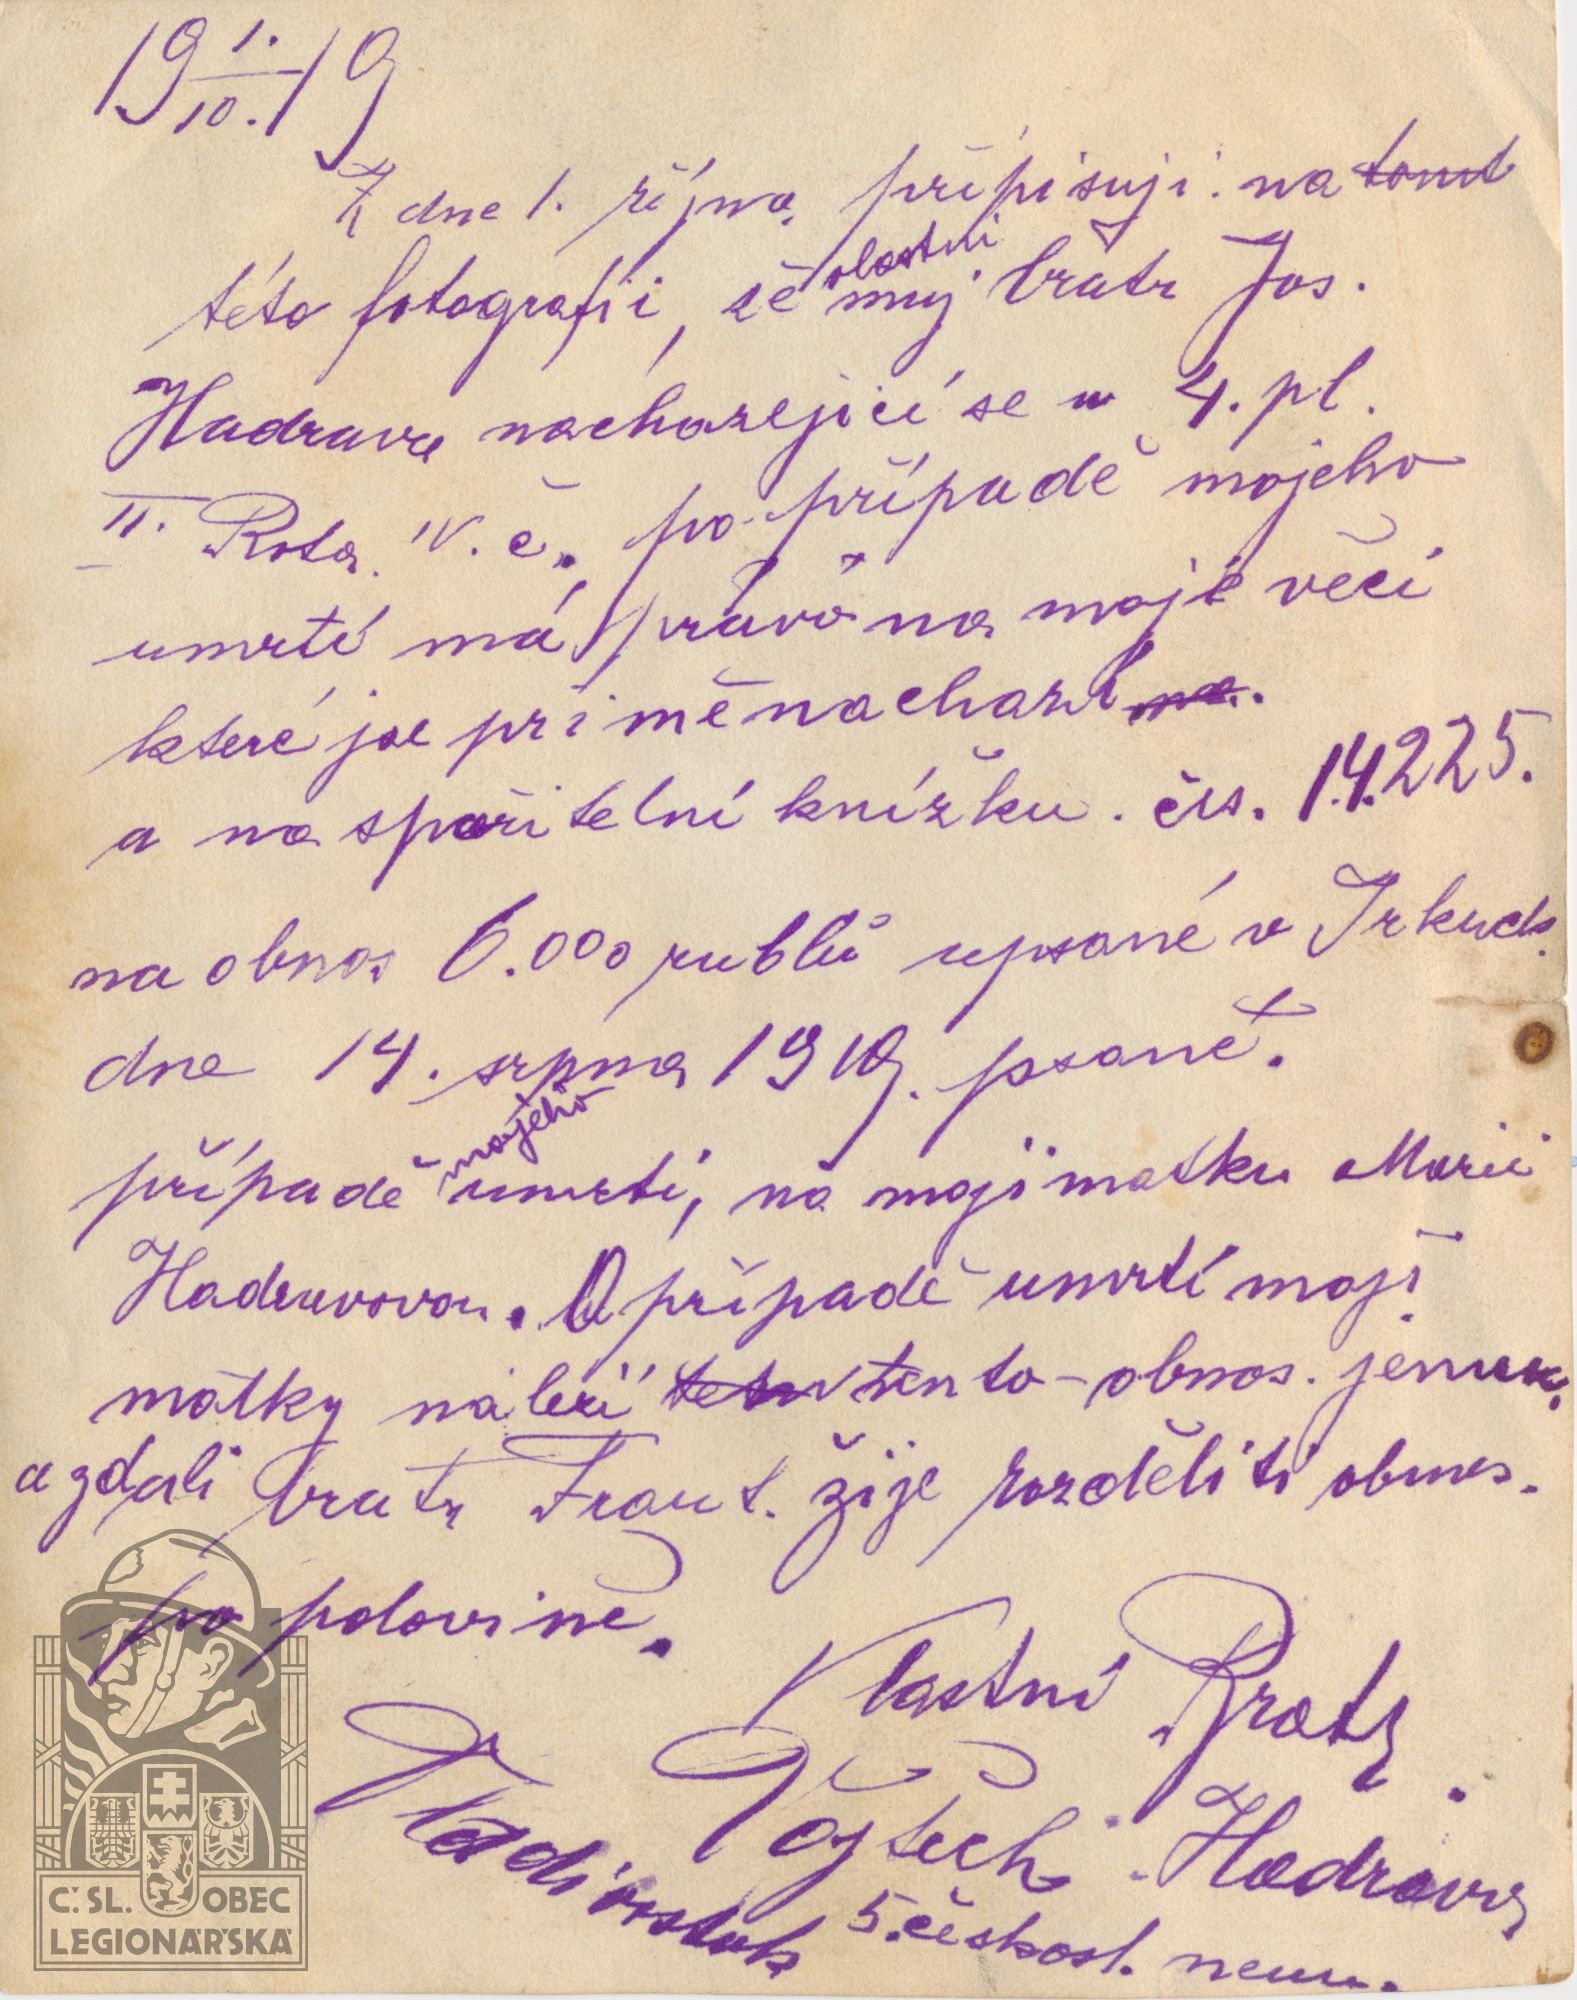 19 1./10. 19
Z dne 1. října, připisuji. na tomt
této fotografii, že vlastni muj bratr Jos.
Hadrava nacházejicí se u 4. pl.
II. Rota. IV. č., po případě mojeho
umrtí má právo na moje věci
které jse při mě nachazí
a na spořitelní knížku. čís. 14.225.
na obnos 6.000 rublů upsané v Irkuck.
dne 14. srpna 1919. psané.
případě mojeho umrti, na moji matku Marii
Hadravovou. V případě umrtí moji
mátky náleží tento-obnos. jemu.
a zdali bratr Frant. žije rozděliti obnos.
po polovině.
Vlastní Bratr.
Vojtěch Hadrava
Vladivostok 5. českosl. nem.
Č. SL. OBEC
LEGIONÁŘSKÁ